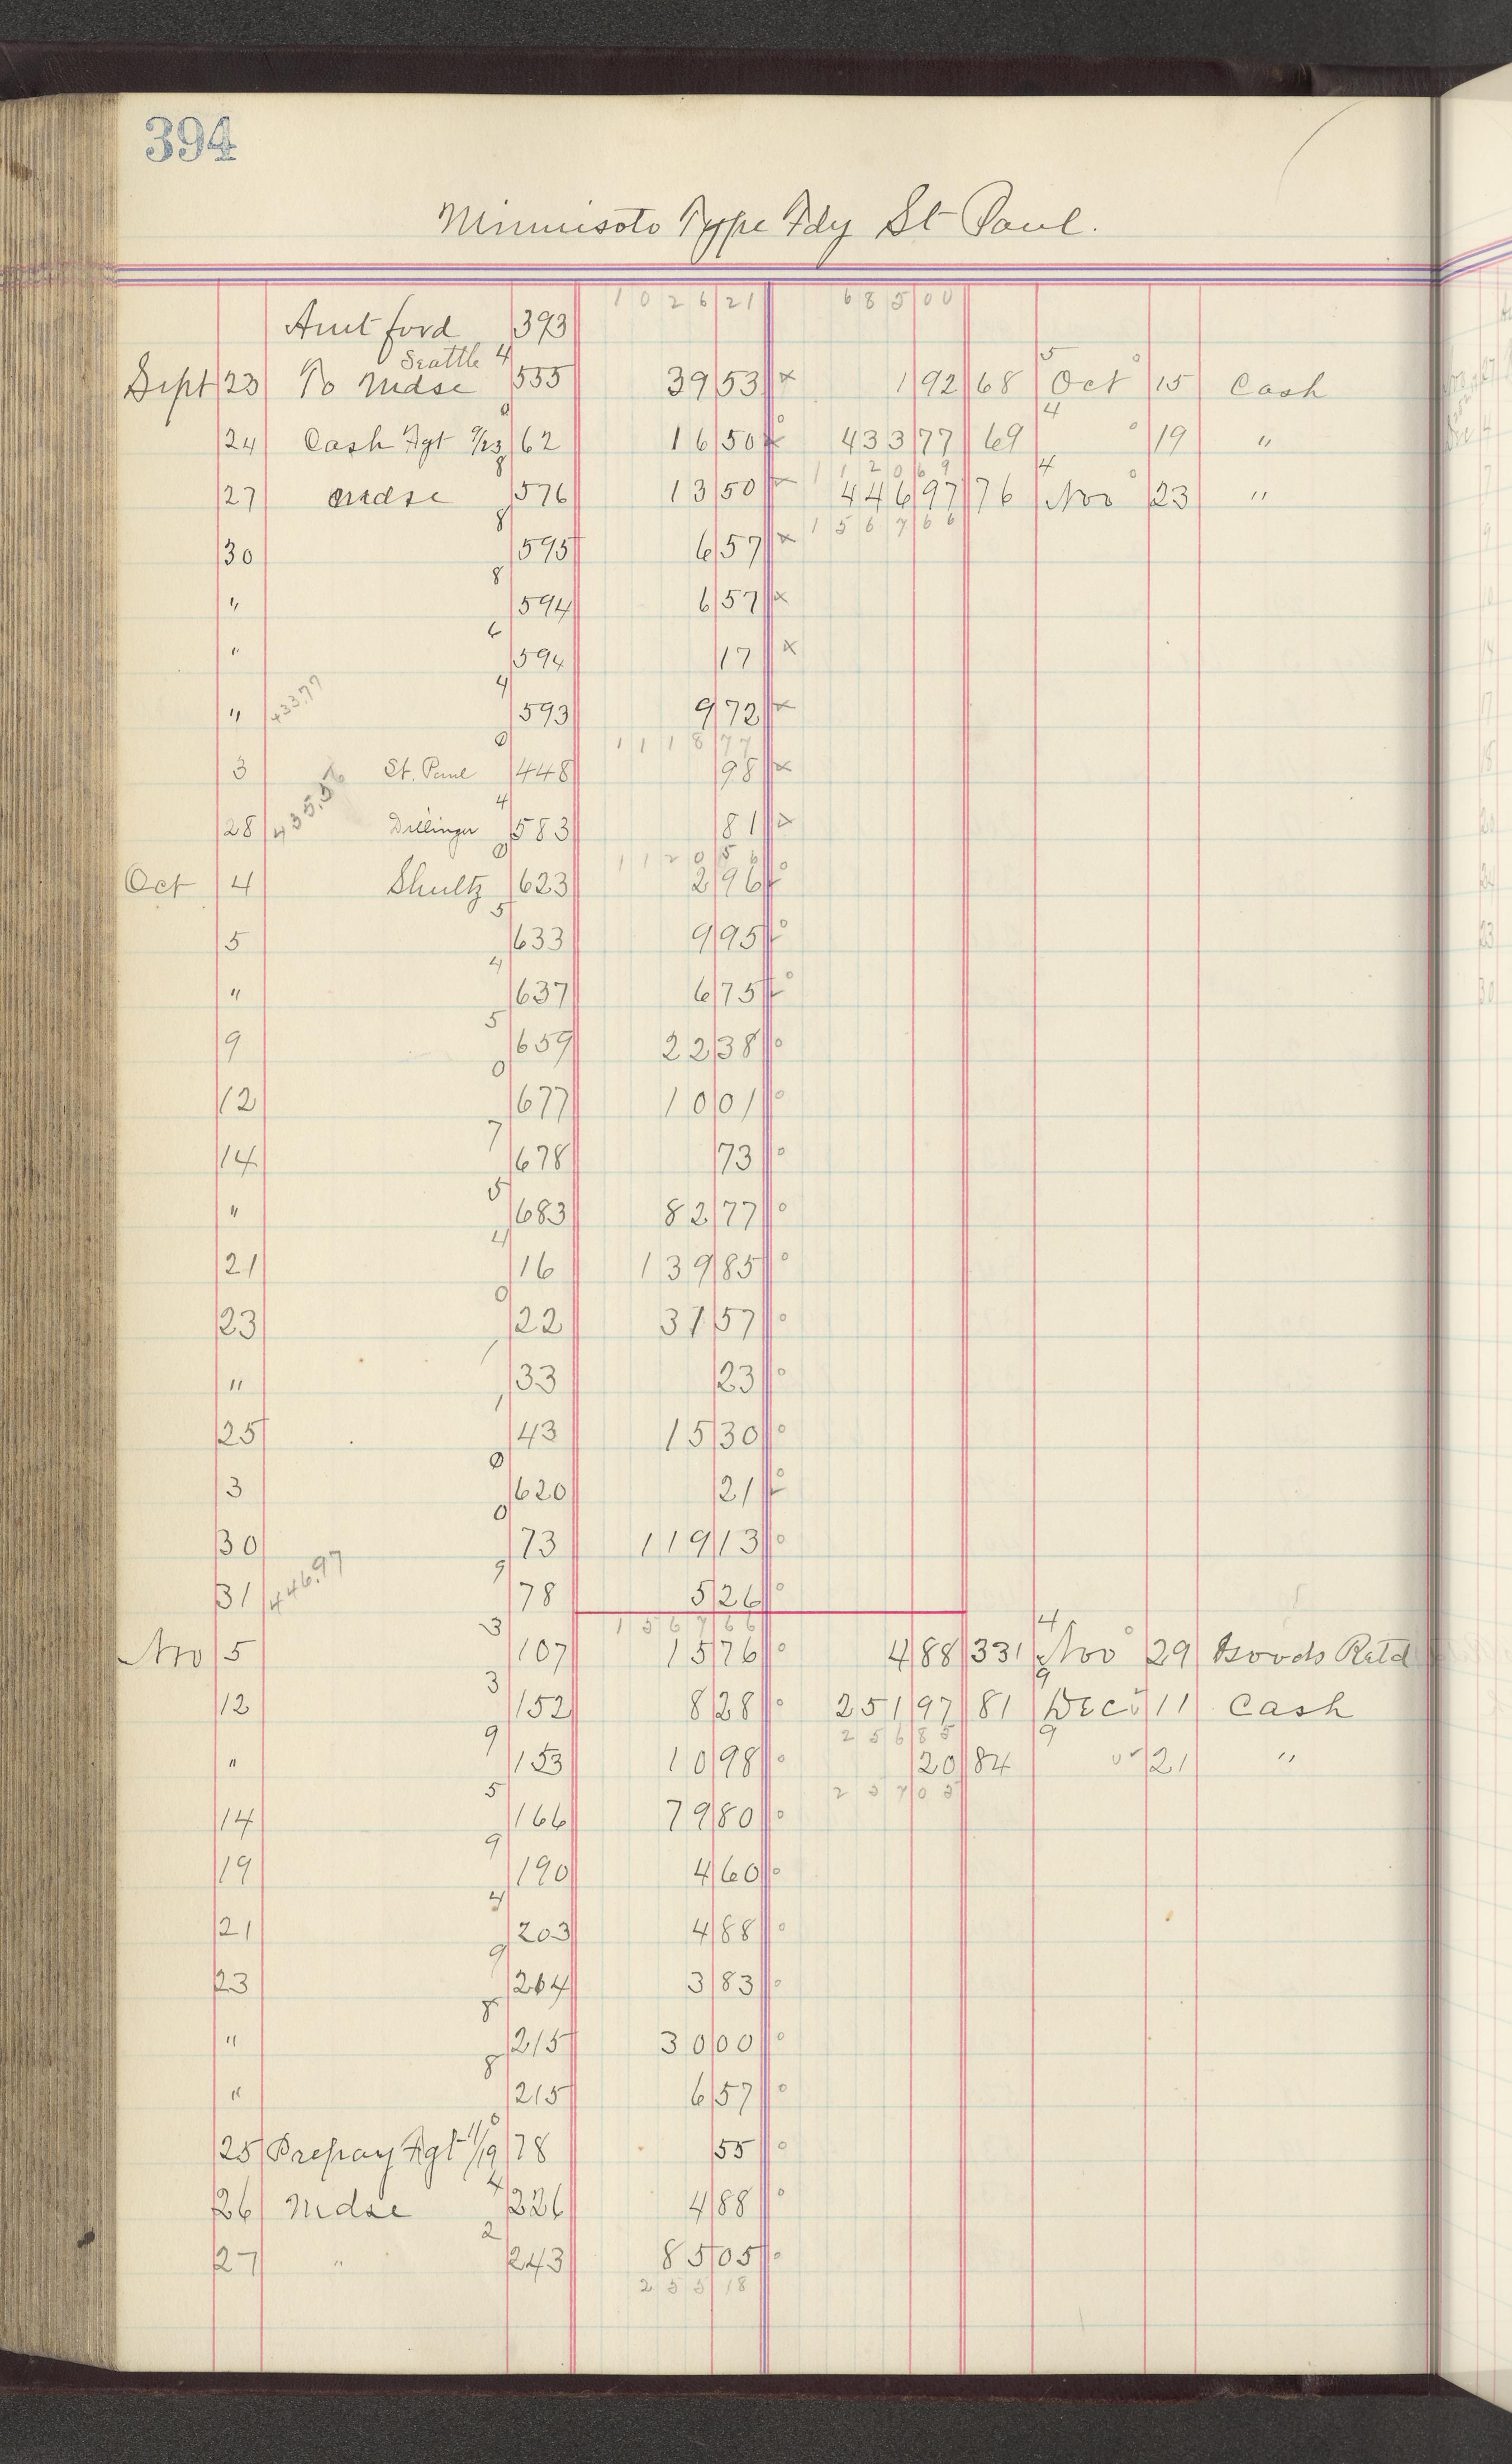 394
Minnisoto Type Fdy St Paul.
Amt ford 393 1026 21 685 00
Seattle 4 5
Sept 23 To Mdse 555 39 53 x 1 92 68 Oct ° 15 Cash
0 4
24 Cash Fgt 9/23 62 16 50 ° 433 77 69 ° 19 "
8 1120 69 4
27 Mdse 576 13 50 x 446 97 76 Nov ° 23 "
8 1567 66
30 595 6 57 x
8
" 594 6 57 x
6
" 594 17 x
4
" 433.77 593 9 72 x
0 1118 77
3 St. Paul 448 98 x
4
28 435.56 Dillinger 583 81 x
0 1120 56
Oct 4 Shultz 623 2 96 °
5
5 633 9 95 °
4
" 637 6 75 °
5
9 659 22 38 °
0
12 677 10 01 °
7
14 678 73 °
5
" 683 82 77 °
4
21 16 139 85 °
0
23 22 37 57 °
1
" 33 23 °
1
25 43 15 30 °
0
3 620 21 °
0
30 73 119 13 °
9
31 446.97 78 5 26 °
3 1567 66 4
Nov 5 107 15 76 ° 4 88 331 Nov ° 29 Goods Retd
3 9
12 152 8 28 ° 251 97 81 Dec 11 Cash
9 256 85 9
" 153 10 98 ° 20 84 21 "
5
14 166 79 80 °
9
19 190 4 60 °
4
21 203 4 88 °
9
23 204 3 83 °
8
" 215 30 00 °
8
" 215 6 57 °
0
25 Prepay Fgt 11/19 78 55 °
4
26 Mdse 226 4 88 °
2
27 " 243 85 05 °
255 18